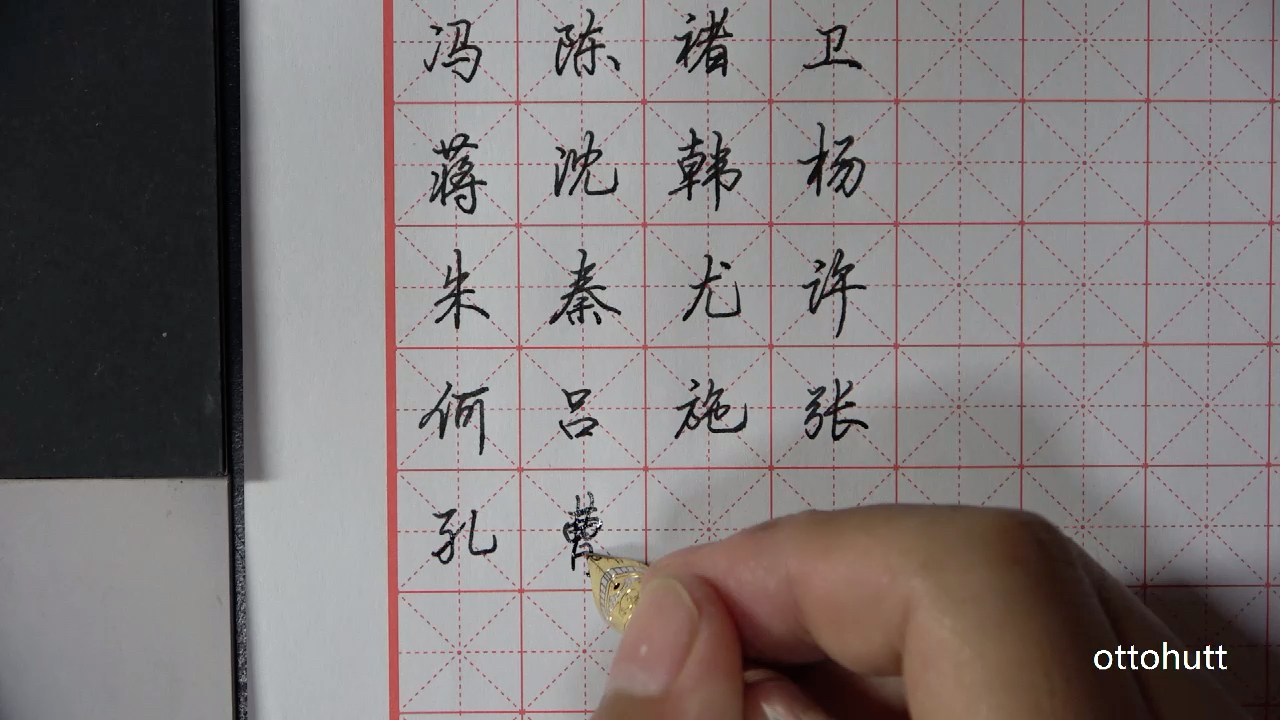 冯陈褚卫
蒋沈韩杨
朱秦尤许
何吕施张
孔曹
ottohutt